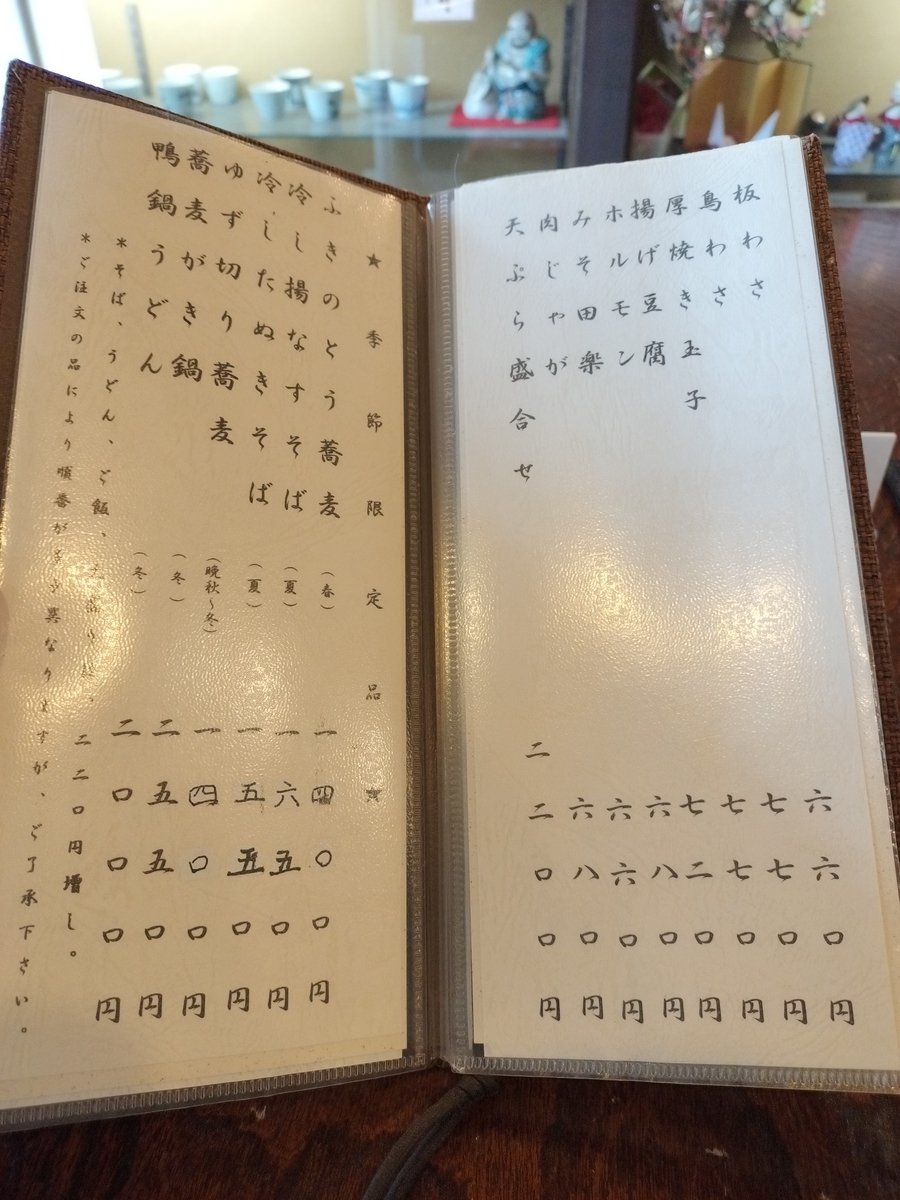 板わさ 六六〇円
鳥わさ 七七〇円
厚焼き玉子 七七〇円
揚げ豆腐 七二〇円
ホルモン 六八〇円
みそ田楽 六六〇円
肉じゃが 六八〇円
天ぷら盛合せ 二二〇〇円
★季節限定品★
ふきのとう蕎麦 （春） 一四〇〇円
冷し揚なすそば （夏） 一六五〇円
冷したぬきそば （夏） 一五五〇円
ゆず切り蕎麦 （晩秋～冬） 一四〇〇円
蕎麦がき鍋 （冬） 二五五〇円
鴨鍋うどん （冬） 二〇〇〇円
＊そば、うどん、ご飯、大盛りは、二二〇円増し。
＊ご注文の品により順番が多少異なりますが、ご了承下さい。